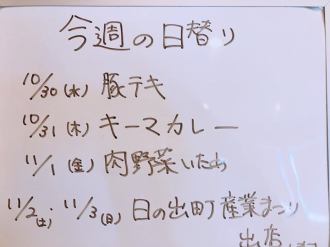 今週の日替り
10/30(水) 豚テキ
10/31(木) キーマカレー
11/1(金) 肉野菜いため
11/2(土)・11/3(日) 日の出町産業まつり
出店